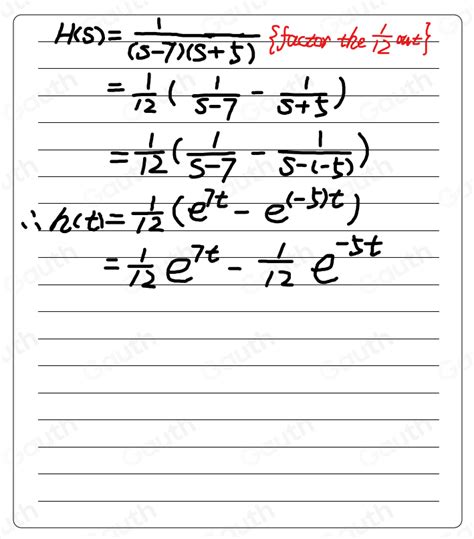 H(s) = 1/((s-7)(s+5)) {factor the 1/12 out}
= 1/12 ( 1/(s-7) - 1/(s+5) )
= 1/12 ( 1/(s-7) - 1/(s-(-5)) )
∴ h(t) = 1/12 (e^{7t} - e^{(-5)t})
= 1/12 e^{7t} - 1/12 e^{-5t}
Gauth